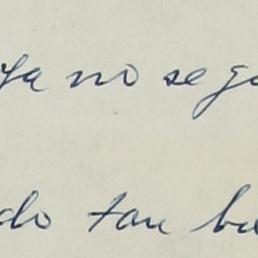 ya no se ga
do tan bu